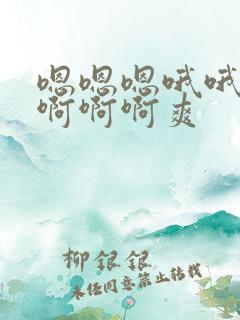 嗯嗯嗯哦哦
啊啊啊爽
柳银银
未经同意禁止转载